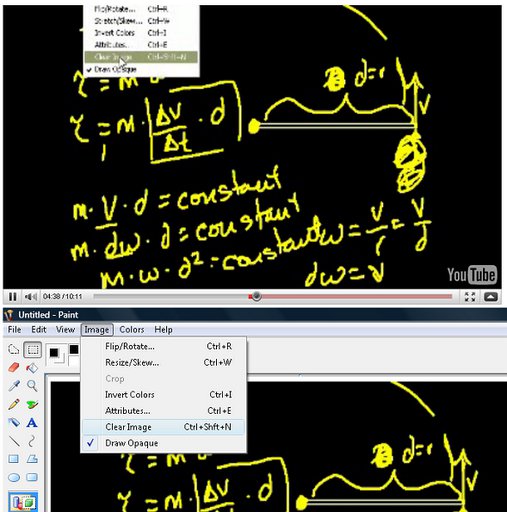 Flip/Rotate... Ctrl+R
Stretch/Skew... Ctrl+W
Invert Colors Ctrl+I
Attributes... Ctrl+E
Clear Image Ctrl+Shft+N
✓ Draw Opaque
τ = m · 
τ = m · Δv/Δt · d
d=r
v
m · v · d = constant
m · dω · d = constant
m · ω · d² = constant
ω = v/r = v/d
dω = v
YouTube
04:38 / 10:11
Untitled - Paint
File Edit View Image Colors Help
Flip/Rotate... Ctrl+R
Resize/Skew... Ctrl+W
Crop
Invert Colors Ctrl+I
Attributes... Ctrl+E
Clear Image Ctrl+Shft+N
✓ Draw Opaque
τ = m · d
d=r
v
τ = m · Δv · d